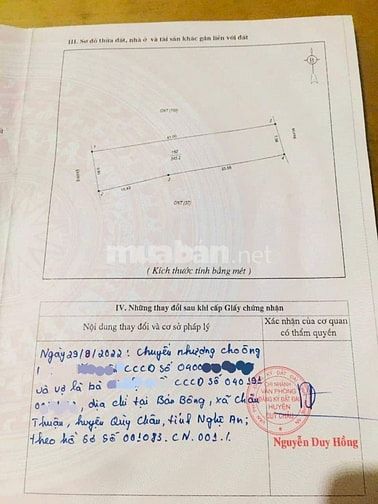 III. Sơ đồ thửa đất, nhà ở và tài sản khác gắn liền với đất
B
ONT (
1
2
192
245.2
3
ONT (
muaban.net
( Kích thước tính bằng mét )
IV. Những thay đổi sau khi cấp Giấy chứng nhận
Nội dung thay đổi và cơ sở pháp lý
Xác nhận của cơ quan có thẩm quyền
Ngày 29/8/2022: Chuyển nhượng cho ông
CCCD Số 0400
và vợ là bà CCCD Số 040191
, địa chỉ tại Bản Bông, xã Châu
Thuận, huyện Quỳ Châu, tỉnh Nghệ An;
theo hồ sơ số 001083.CN.001./.
CHI NHÁNH
VĂN PHÒNG
ĐĂNG KÝ ĐẤT ĐAI
HUYỆN
QUỲ CHÂU
Nguyễn Duy Hồng